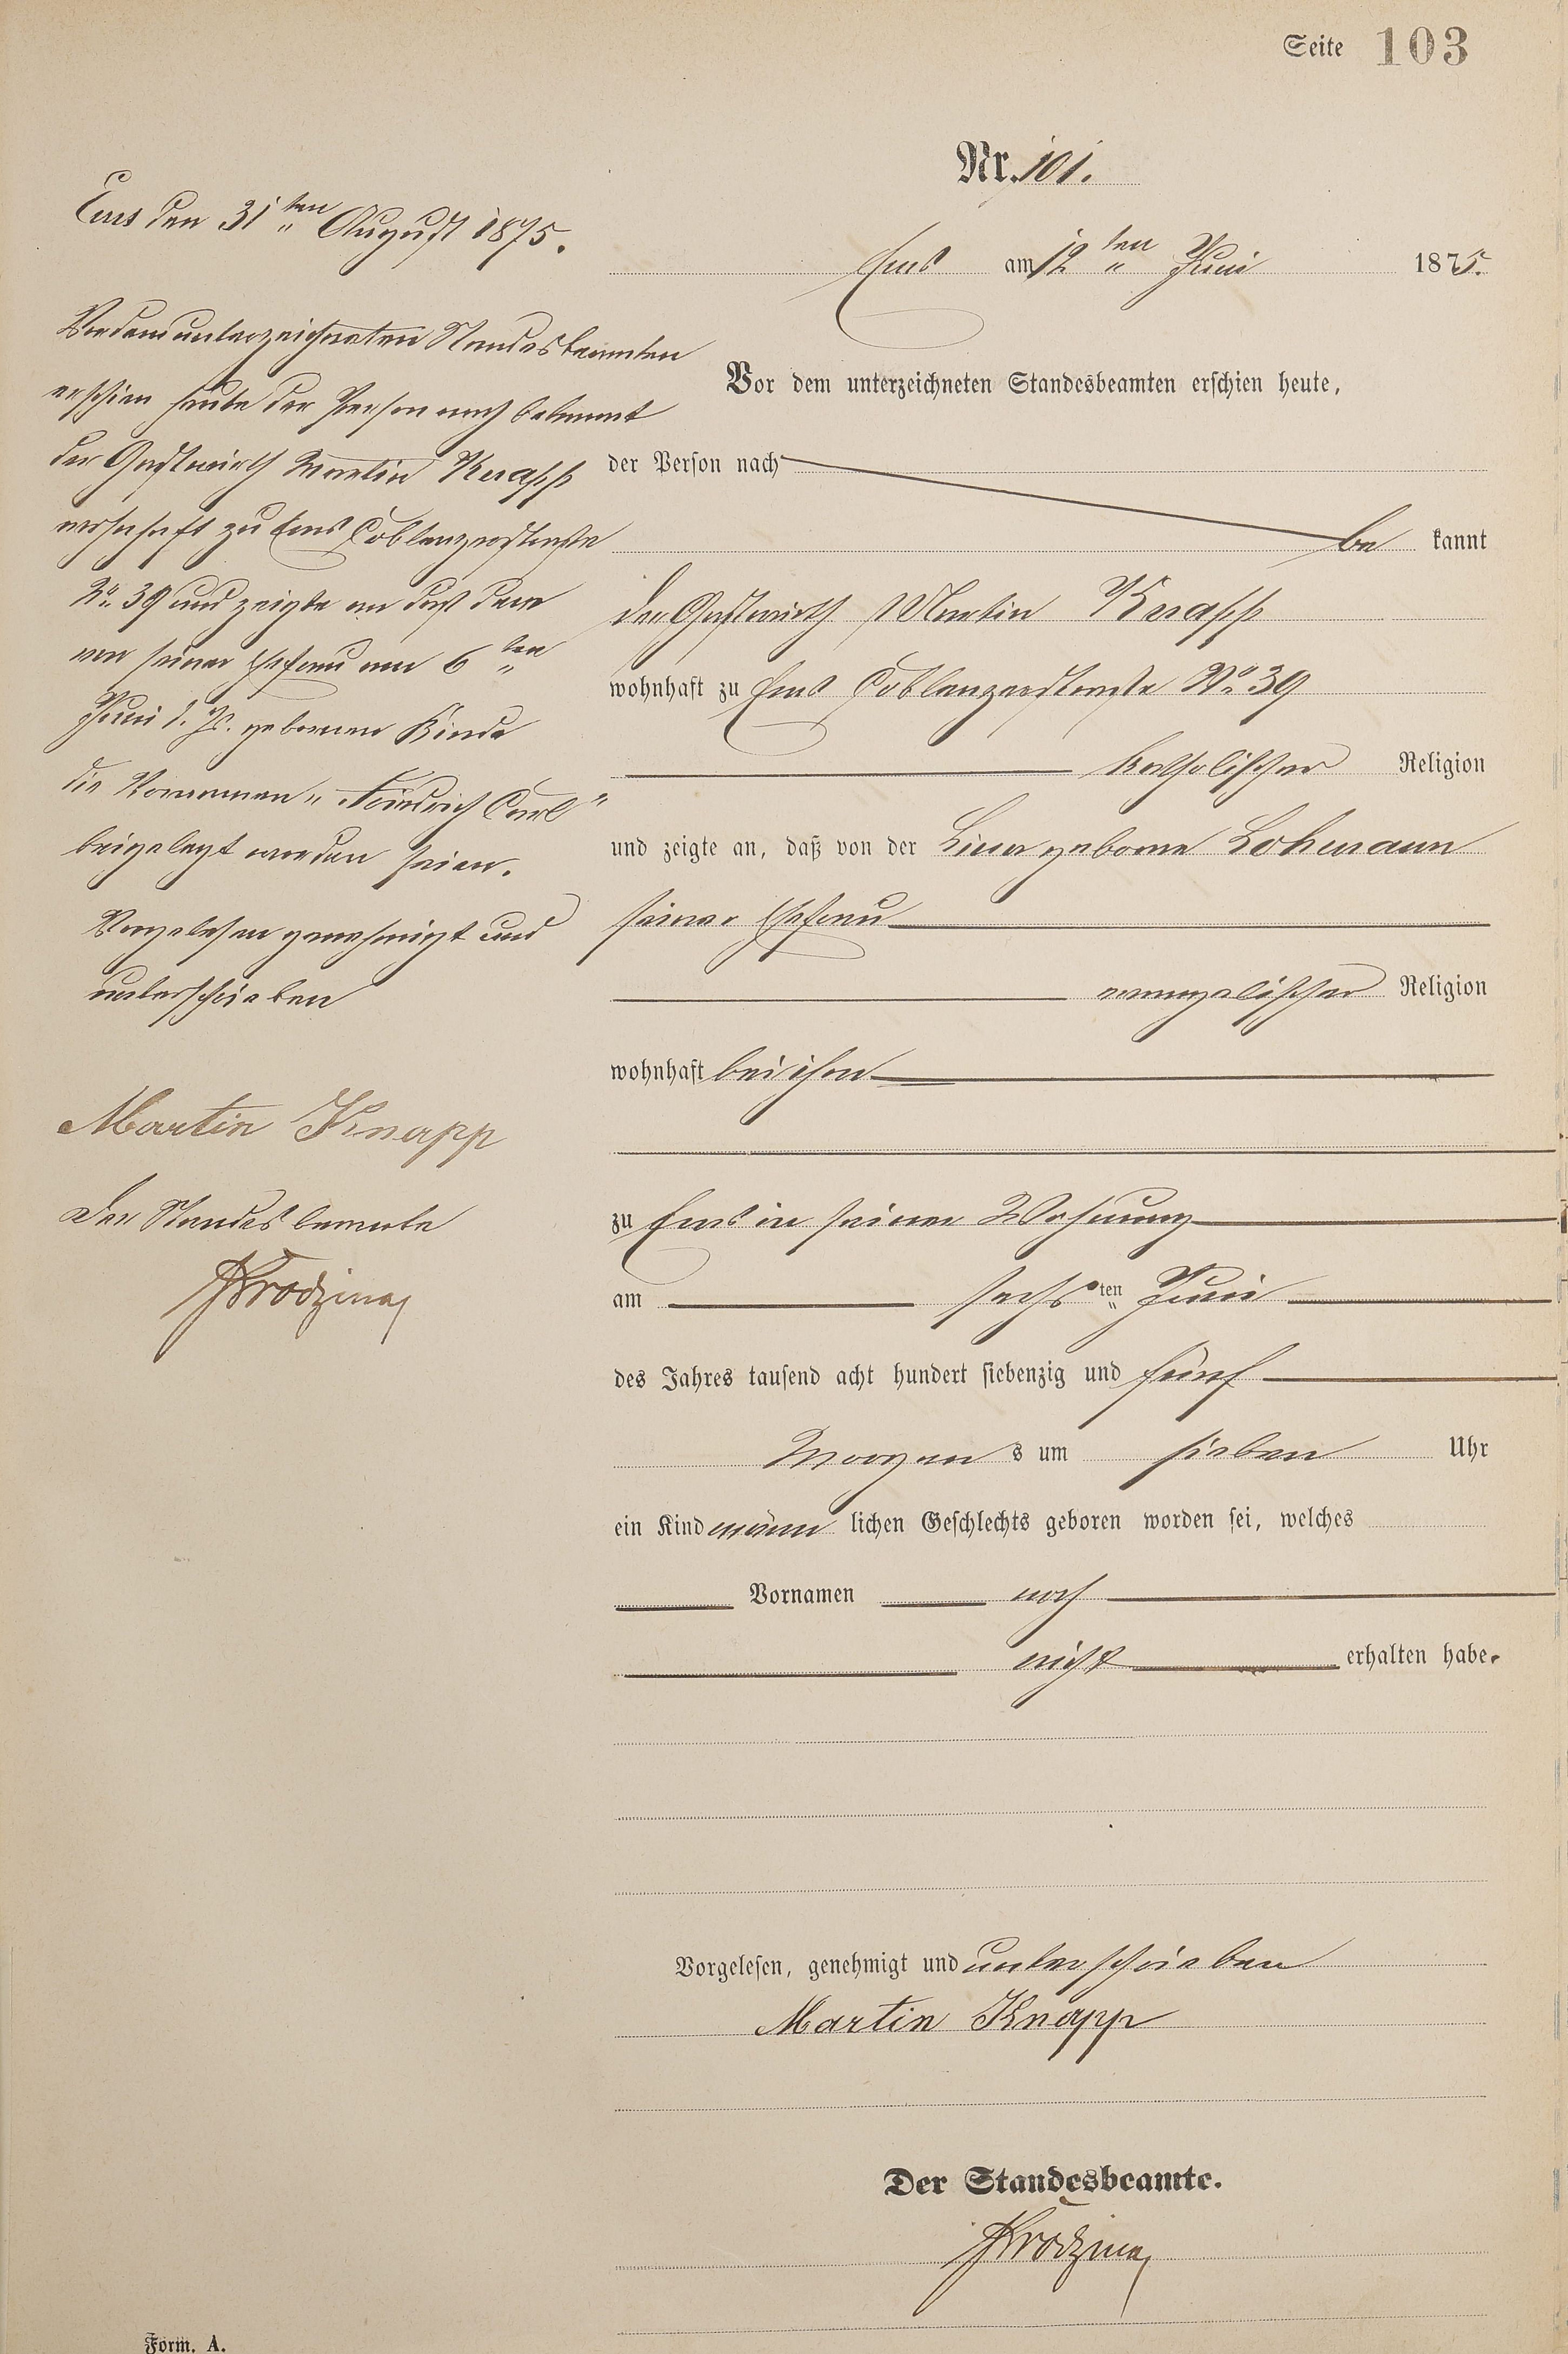 Seite 103
Nr. 101.
Ems am 12ten Juni 1875.
Vor dem unterzeichneten Standesbeamten erschien heute,
der Person nach
be kannt
der Gastwirth Martin Knapp
wohnhaft zu Ems Coblenzerstraße No 39
katholischer Religion
und zeigte an, daß von der Lina geborne Lohmann
seiner Ehefrau
evangelischer Religion
wohnhaft bei ihm
zu Ems in seiner Wohnung
am sechsten Juni
des Jahres tausend acht hundert siebenzig und fünf
Morgen s um sieben Uhr
ein Kind männ lichen Geschlechts geboren worden sei, welches
Vornamen noch
nicht erhalten habe.
Vorgelesen, genehmigt und unterschrieben
Martin Knapp
Der Standesbeamte.
Ems den 31ten August 1875.
Vor dem unterzeichneten Standesbeamten
erschien heute der Person nach bekannt
der Gastwirth Martin Knapp
wohnhaft zu Ems Coblenzerstraße
No. 39 und zeigte an daß dem
von seiner Ehefrau am 6ten
Juni l. Js. gebornen Kinde
die Vornamen „Friedrich Carl"
beigelegt worden seien.
Vorgelesen genehmigt und
unterschrieben
Martin Knapp
Der Standesbeamte
Form. A.